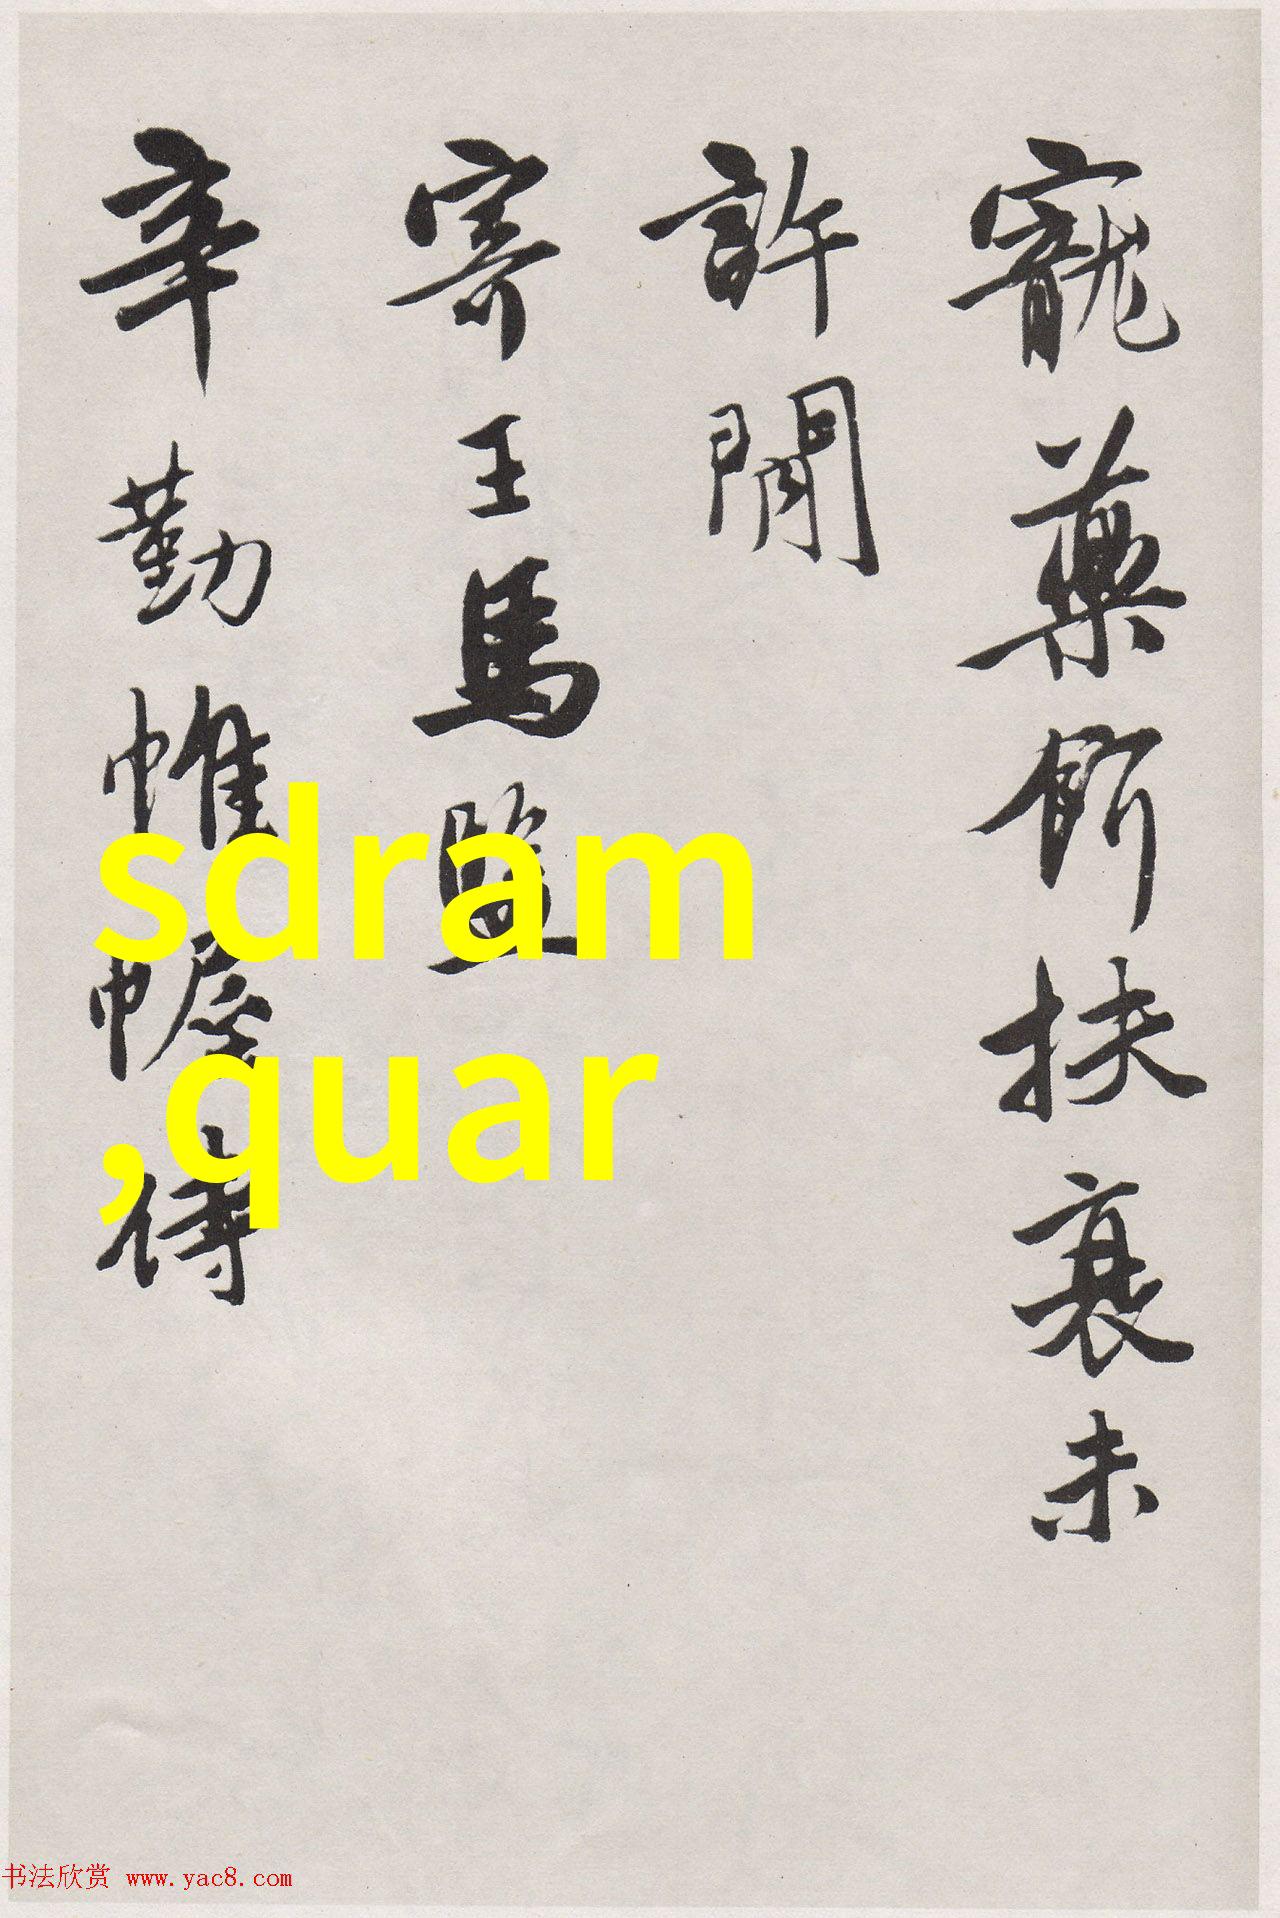 寵藥餌扶衰未
許閒
寄王馬監
辛勤帷幄待
sdram
,quar
书法欣赏 www.yac8.com